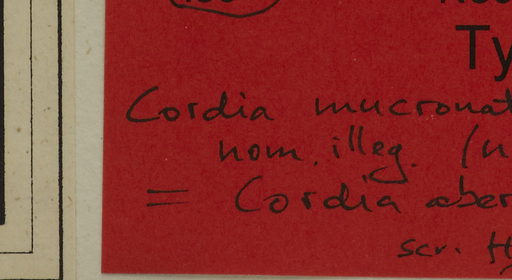 Ty
Cordia mucronat
nom. illeg. (n
= Cordia aber
scr.